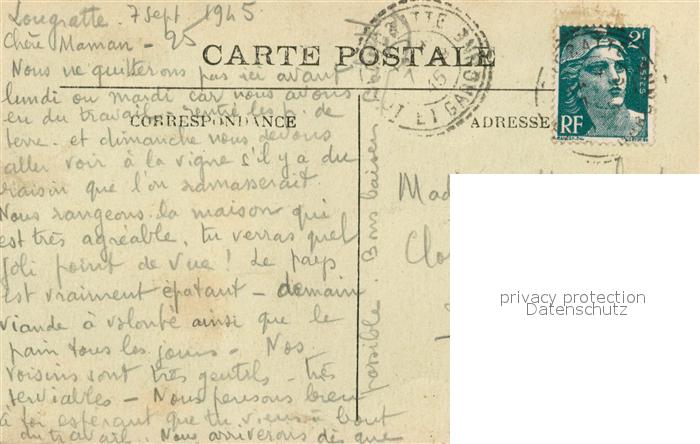 Lougratte. 7 sept 1945
Chère Maman -
CARTE POSTALE
Nous ne quitterons pas ici avant
lundi ou mardi car nous avons
eu du travail, rentré les p. de
CORRESPONDANCE
ADRESSE
terre. et dimanche nous devons
aller voir à la vigne s'il y a du
raison que l'on ramasserait.
Nous rangeons la maison qui
est très agréable, tu verras quel
joli point de vue ! Le pays
est vraiment épatant - demain
viande à volonté ainsi que le
pain tous les jours - Nos
voisins sont très gentils - très
serviables - Nous pensons bien
à toi espérant que tu viens à bout
du travail. Nous arriverons dès que
possible. Bons baisers
2F
POSTES
RF
LOUGRATTE
LOT ET GARONNE
Mad
Clo
privacy protection
Datenschutz